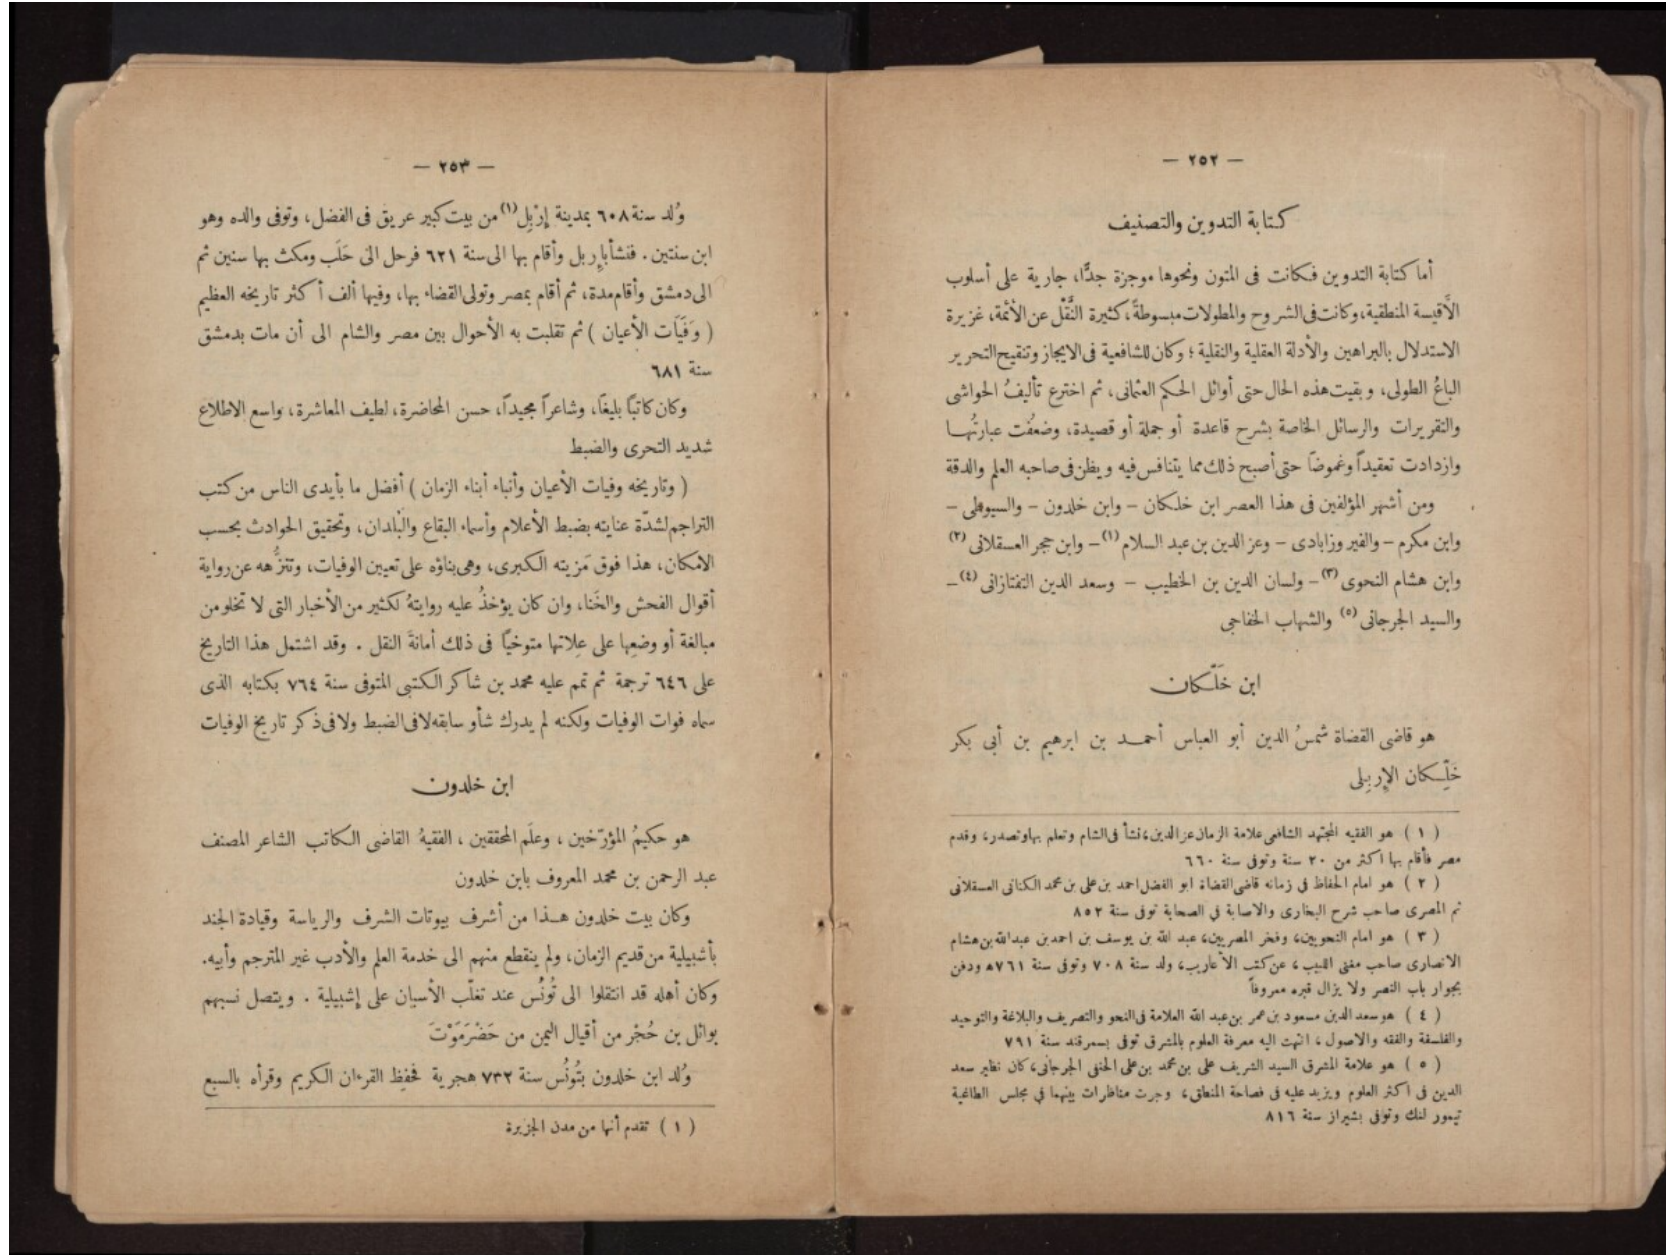 — ٢٥٢ —
كتابة التدوين والتصنيف
أما كتابة التدوين فكانت فى المتون ونحوها موجزة جدًّا، جارية على أسلوب
الأقيسة المنطقية، وكانت فى الشروح والمطولات مبسوطةً، كثيرة النَّقْل عن الأئمة، غزيرة
الاستدلال بالبراهين والأدلة العقلية والنقلية ؛ وكان للشافعية فى الايجاز وتنقيح التحرير
الباعُ الطولى، وبقيت هذه الحال حتى أوائل الحكم العثمانى، ثم اخترع تأليفُ الحواشى
والتقريرات والرسائل الخاصة بشرح قاعدة أو جملة أو قصيدة، وضعُفت عبارتُهـا
وازدادت تعقيداً وغموضًا حتى أصبح ذلك مما يتنافس فيه ويظن فى صاحبه العلم والدقة
ومن أشهر المؤلفين فى هذا العصر ابن خلكان – وابن خلدون – والسيوطى –
وابن مكرم – والفيروزابادى – وعز الدين بن عبد السلام (١) – وابن حجر العسقلانى (٢)
وابن هشام النحوى (٣) – ولسان الدين بن الخطيب – وسعد الدين التفتازانى (٤) –
والسيد الجرجانى (٥) والشهاب الخفاجى
ابن خَلّكان
هو قاضى القضاة شمسُ الدين أبو العباس أحمـد بن ابرهيم بن أبى بكر
خَلِّكان الإِربِلى
( ١ ) هو الفقيه المجتهد الشافعى علامة الزمان عز الدين، نشأ فى الشام وتعلم بها وتصدر، وقدم
مصر فأقام بها اكثر من ٢٠ سنة وتوفى سنة ٦٦٠
( ٢ ) هو امام الحفاظ فى زمانه قاضى القضاة ابو الفضل احمد بن على بن محمد الكنانى العسقلانى
ثم المصرى صاحب شرح البخارى والاصابة في الصحابة توفى سنة ٨٥٢
( ٣ ) هو امام النحويين، وفخر المصريين، عبد الله بن يوسف بن احمد بن عبدالله بن هشام
الانصارى صاحب مغنى اللبيب ، عن كتب الأعاريب، ولد سنة ٧٠٨ وتوفى سنة ٧٦١ه ودفن
بجوار باب النصر ولا يزال قبره معروفاً
( ٤ ) هو سعد الدين مسعود بن عمر بن عبد الله العلامة فى النحو والتصريف والبلاغة والتوحيد
والفلسفة والفقه والاصول ، انتهت اليه معرفة العلوم بالمشرق توفى بسمرقند سنة ٧٩١
( ٥ ) هو علامة المشرق السيد الشريف على بن محمد بن على الحنفى الجرجانى، كان نظير سعد
الدين فى اكثر العلوم ويزيد عليه فى فصاحة المنطق، وجرت مناظرات بينهما في مجلس الطاغية
تيمور لنك وتوفى بشيراز سنة ٨١٦
— ٢٥٣ —
وُلد سنة ٦٠٨ بمدينة إِرْبِل (١) من بيت كبير عريق فى الفضل، وتوفى والده وهو
ابن سنتين . فنشأ بإِربل وأقام بها الى سنة ٦٢١ فرحل الى حَلَب ومكث بها سنين ثم
الى دمشق وأقام مدة، ثم أقام بمصر وتولى القضاء بها، وفيها ألف أكثر تاريخه العظيم
( وَفَيَات الأعيان ) ثم تقلبت به الأحوال بين مصر والشام الى أن مات بدمشق
سنة ٦٨١
وكان كاتبًا بليغًا، وشاعراً مجيداً، حسن المحاضرة، لطيف المعاشرة، واسع الاطلاع
شديد التحرى والضبط
( وتاريخه وفيات الأعيان وأنباء أبناء الزمان ) أفضل ما بأيدى الناس من كتب
التراجم لشدّة عنايته بضبط الأعلام وأسماء البقاع والبُلدان، وتحقيق الحوادث بحسب
الامكان، هذا فوق مَزيته الكبرى، وهى بناؤه على تعيين الوفيات، وتنزُّهه عن رواية
أقوال الفحش والخَنا، وان كان يؤخذُ عليه روايتهُ لكثير من الأخبار التى لا تخلو من
مبالغة أو وضعِها على عِلاتها متوخيًا فى ذلك أمانةَ النقل . وقد اشتمل هذا التاريخ
على ٦٤٦ ترجمة ثم تمم عليه محمد بن شاكر الكتبى المتوفى سنة ٧٦٤ بكتابه الذى
سماه فوات الوفيات ولكنه لم يدرك شأو سابقه لا فى الضبط ولا فى ذكر تاريخ الوفيات
ابن خلدون
هو حكيمُ المؤرّخين ، وعلَم المحققين ، الفقيهُ القاضى الكاتب الشاعر المصنف
عبد الرحمن بن محمد المعروف بابن خلدون
وكان بيت خلدون هـذا من أشرف بيوتات الشرف والرياسة وقيادة الجند
بأشبيلية من قديم الزمان، ولم ينقطع منهم الى خدمة العلم والأدب غير المترجم وأبيه.
وكان أهله قد انتقلوا الى تُونُس عند تغلّب الأسبان على إشبيلية . ويتصل نسبهم
بوائل بن حُجْر من أقيال اليمن من حَضْرَمَوْتَ
وُلد ابن خلدون بتُونُس سنة ٧٣٢ هجرية فحفِظ القرءان الكريم وقرأه بالسبع
( ١ ) تقدم أنها من مدن الجزيرة